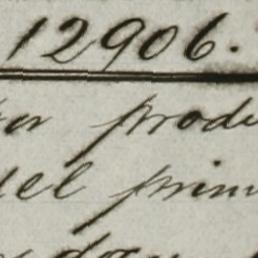 12906.
por produ
del prim